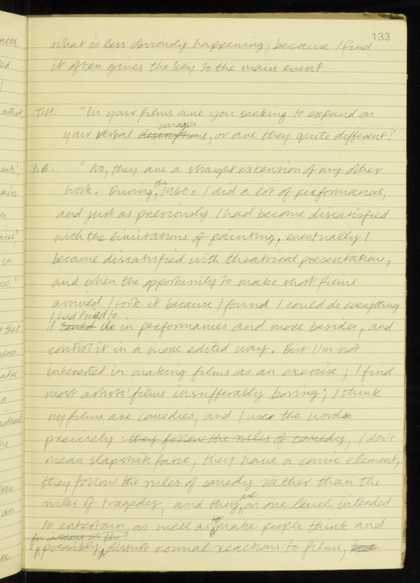 133
what is less obviously happening, because I find
it often gives the key to the main event
"In your films are you seeking to expand on
images
your verbal descriptions, or are they quite different?
"No, they are a straight extension of my other
the
work. During 1960s I did a lot of performances,
and just as previously I had become dissatisfied
with the limitations of painting, eventually I
became dissatisfied with theatrical presentations,
and when the opportunity to make short films
arrived I took it because I found I could do everything
I had tried to
I do in performances and more besides, and
control it in a more edited way. But I'm not
interested in making films as an exercise; I find
most artists' films insufferably boring; I think
my films are comedies, and I use the word
precisely : they follow the rules of comedy, I don't
mean slapstick farce, they have a comic element,
they follow the rules of comedy rather than the
rules of tragedy, and they, on one level intended
to entertain, as well as make people think and
possibly, disturb normal reactions to films,